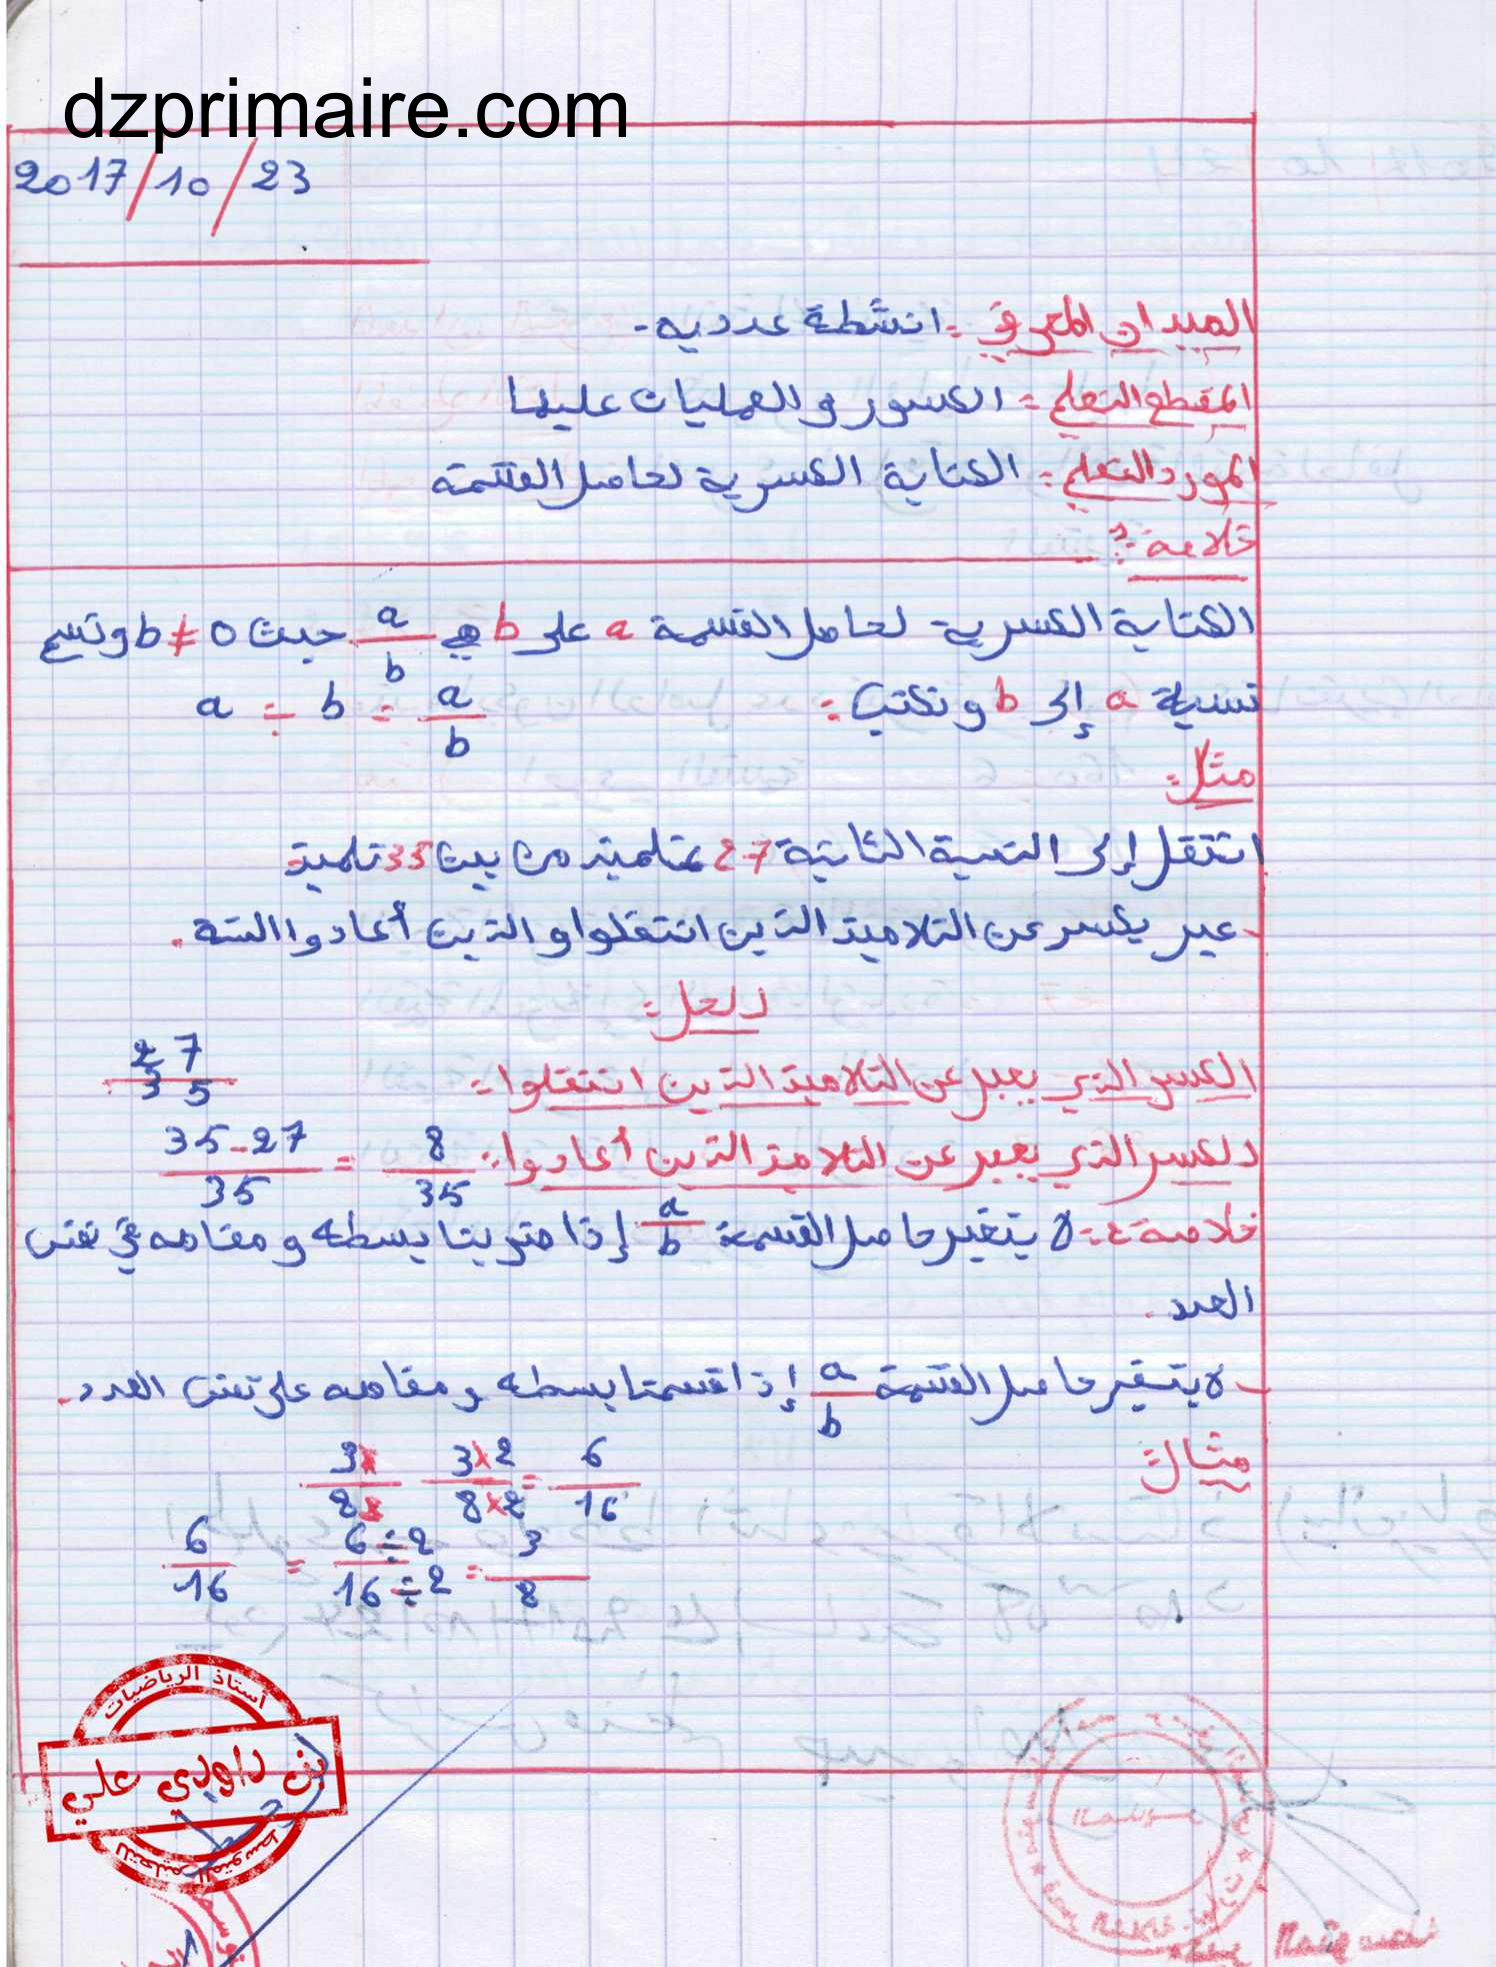 dzprimaire.com
2017/10/23
الميدان المعرفي : انشطة عدديه -
المقطع التعلمي : الكسور والعمليات عليها
المورد التعلمي : الكتابة الكسرية لحاصل القسمة
خلاصة 1 :
الكتابة الكسرية لحاصل القسمة a على b هي a/b حيث b ≠ 0 وتسمى
نسبة a إلى b ونكتب : a ÷ b = a/b
مثل :
انتقل إلى السنة الثانية 27 تلميذ من بين 35 تلميذ
- عبر بكسر عن التلاميذ الذين انتقلوا والذين أعادوا السنة .
الحل :
الكسر الذي يعبر عن التلاميذ الذين انتقلوا : 27/35
الكسر الذي يعبر عن التلاميذ الذين أعادوا : 35-27/35 = 8/35
خلاصة 2 : لا يتغير حاصل القسمة a/b إذا ضربنا بسطه ومقامه في نفس
العدد .
- لا يتغير حاصل القسمة a/b إذا قسمنا بسطه ومقامه على نفس العدد .
مثال
3×/8× 3×2/8×2 = 6/16
6/16 = 6÷2/16÷2 = 3/8
أستاذ الرياضيات
بن داودي علي
للتعليم المتوسط